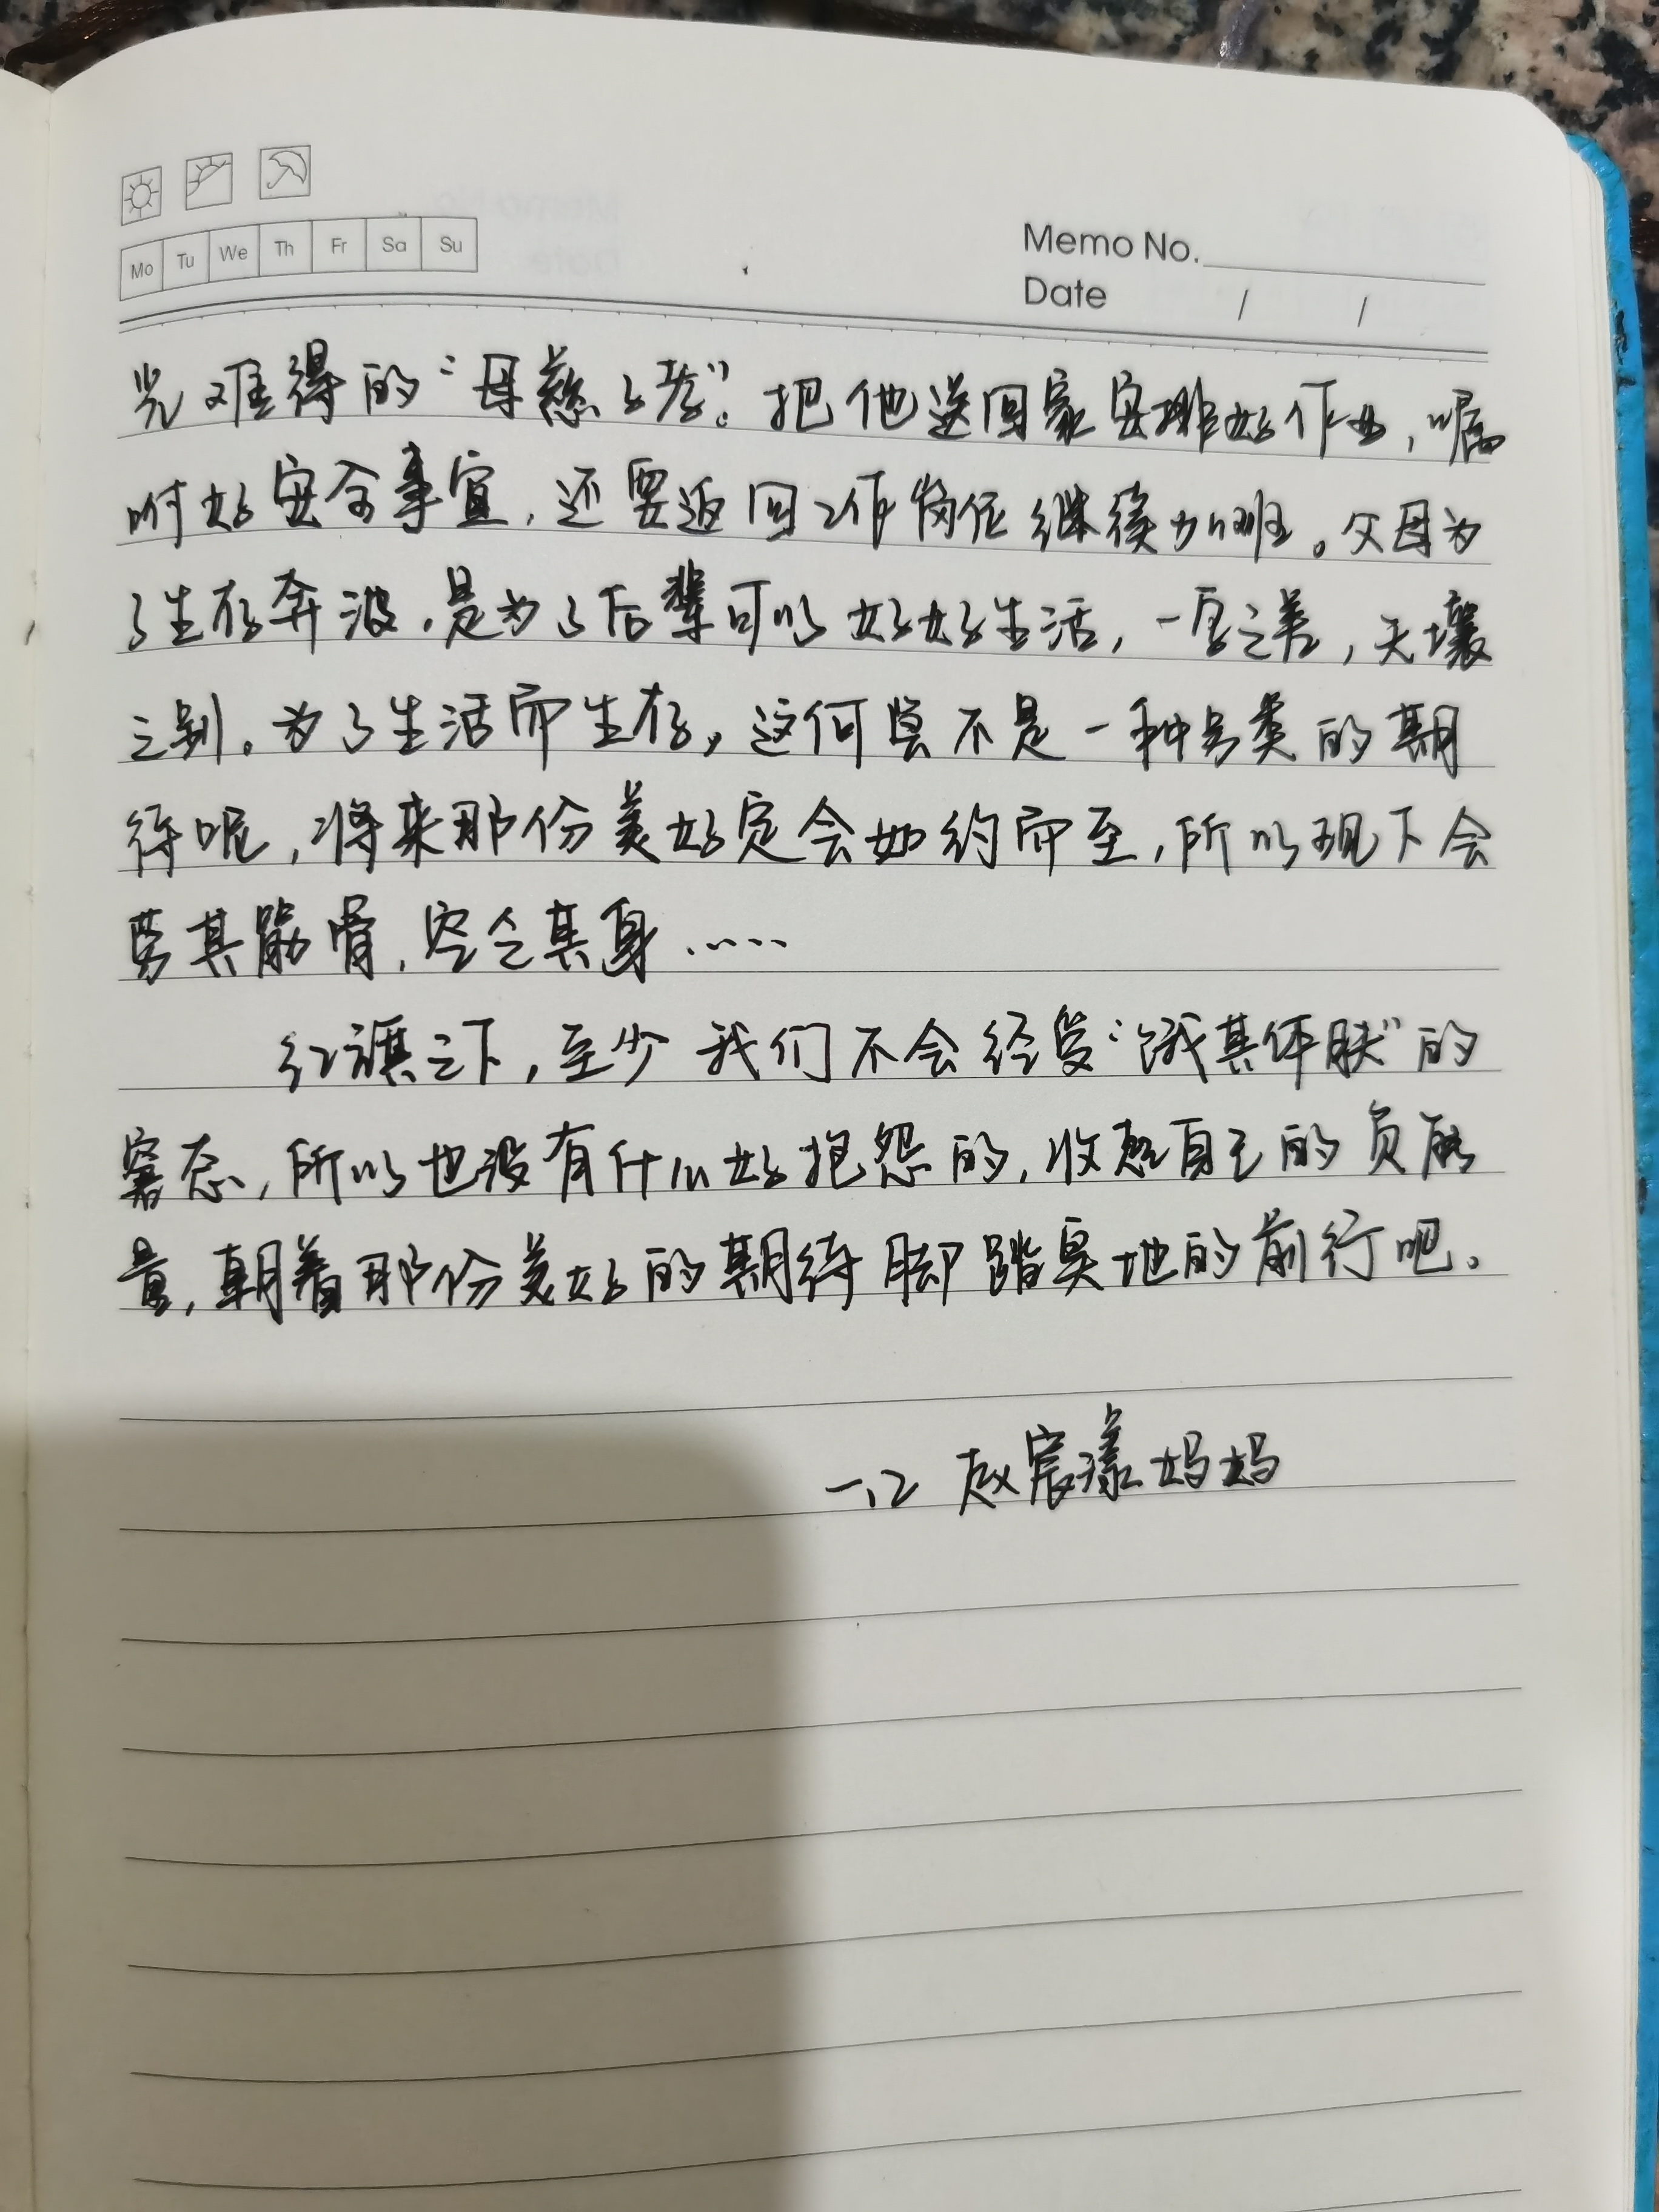 Mo Tu We Th Fr Sa Su
Memo No.
Date / /
光难得的“母慈子孝”。把他送回家安排好作业,嘱
咐好安全事宜,还要返回工作岗位继续加班。父母为
了生存奔波,是为了后辈可以好好生活,一字之差,天壤
之别。为了生活而生存,这何尝不是一种另类的期
待呢,将来那份美好定会如约而至,所以现下会
劳其筋骨,空乏其身……
红旗之下,至少我们不会经受“饿其体肤”的
窘态,所以也没有什么好抱怨的,收起自己的负能
量,朝着那份美好的期待脚踏实地的前行吧。
一.2 赵宸漾妈妈